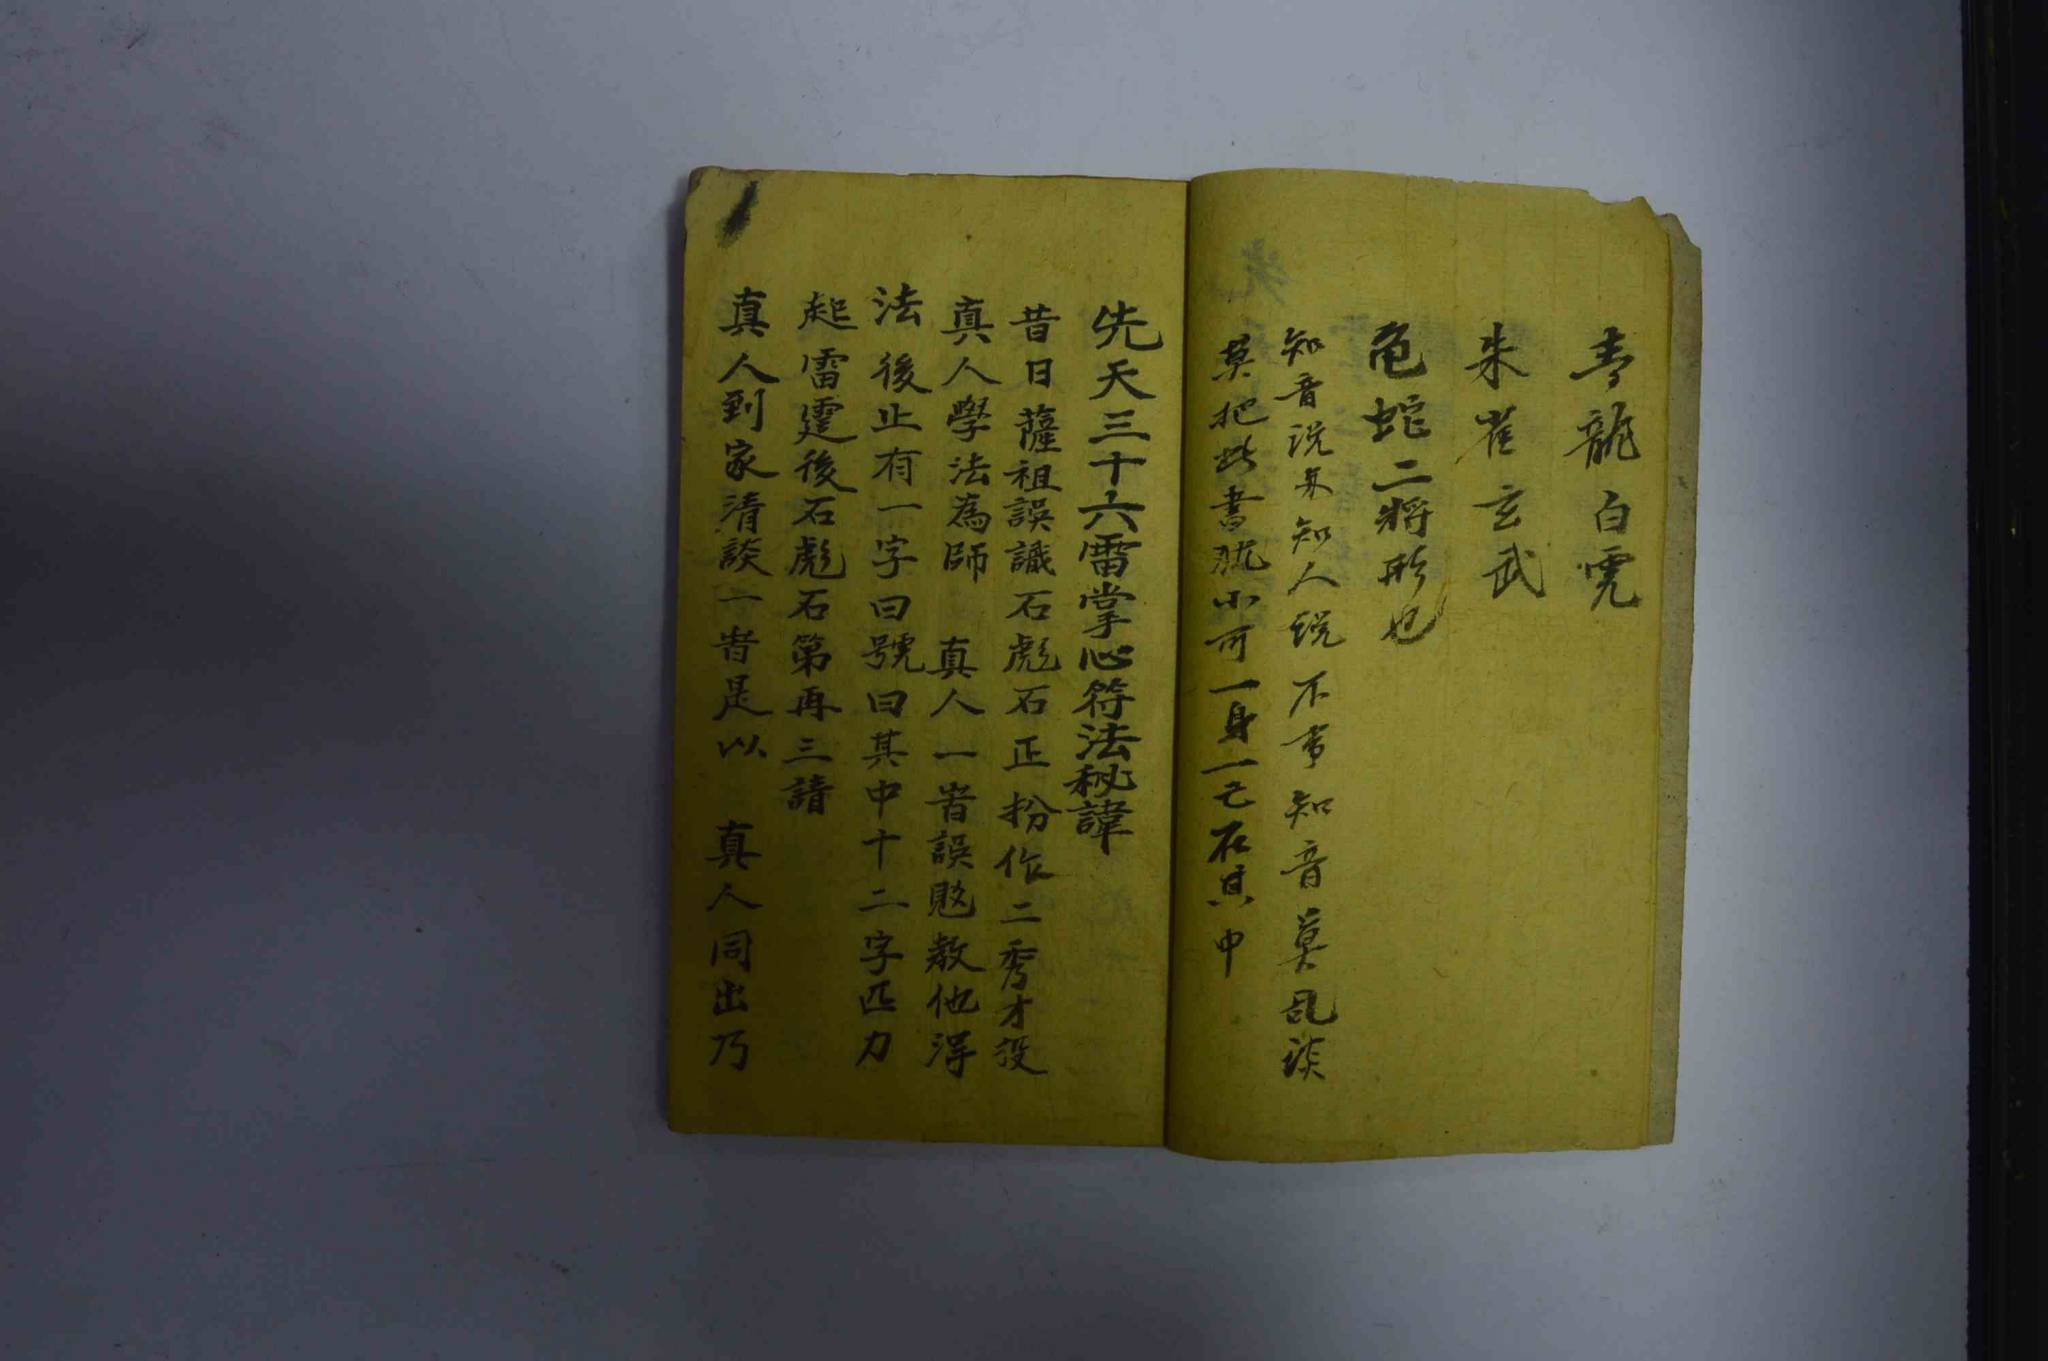 青龍白虎
朱雀玄武
龟蛇二將形也
知音说与知人说不是知音莫乱谈
莫把此書視小可一身一己在其中
先天三十六雷掌心符法秘諱
昔日薩祖誤識石彪石正扮作二秀才投
真人學法為師 真人一時誤敗教他得
法後止有一字曰號曰其中十二字匹力
起雷霆後石彪石第再三請
真人到家清談一時是以 真人同出乃